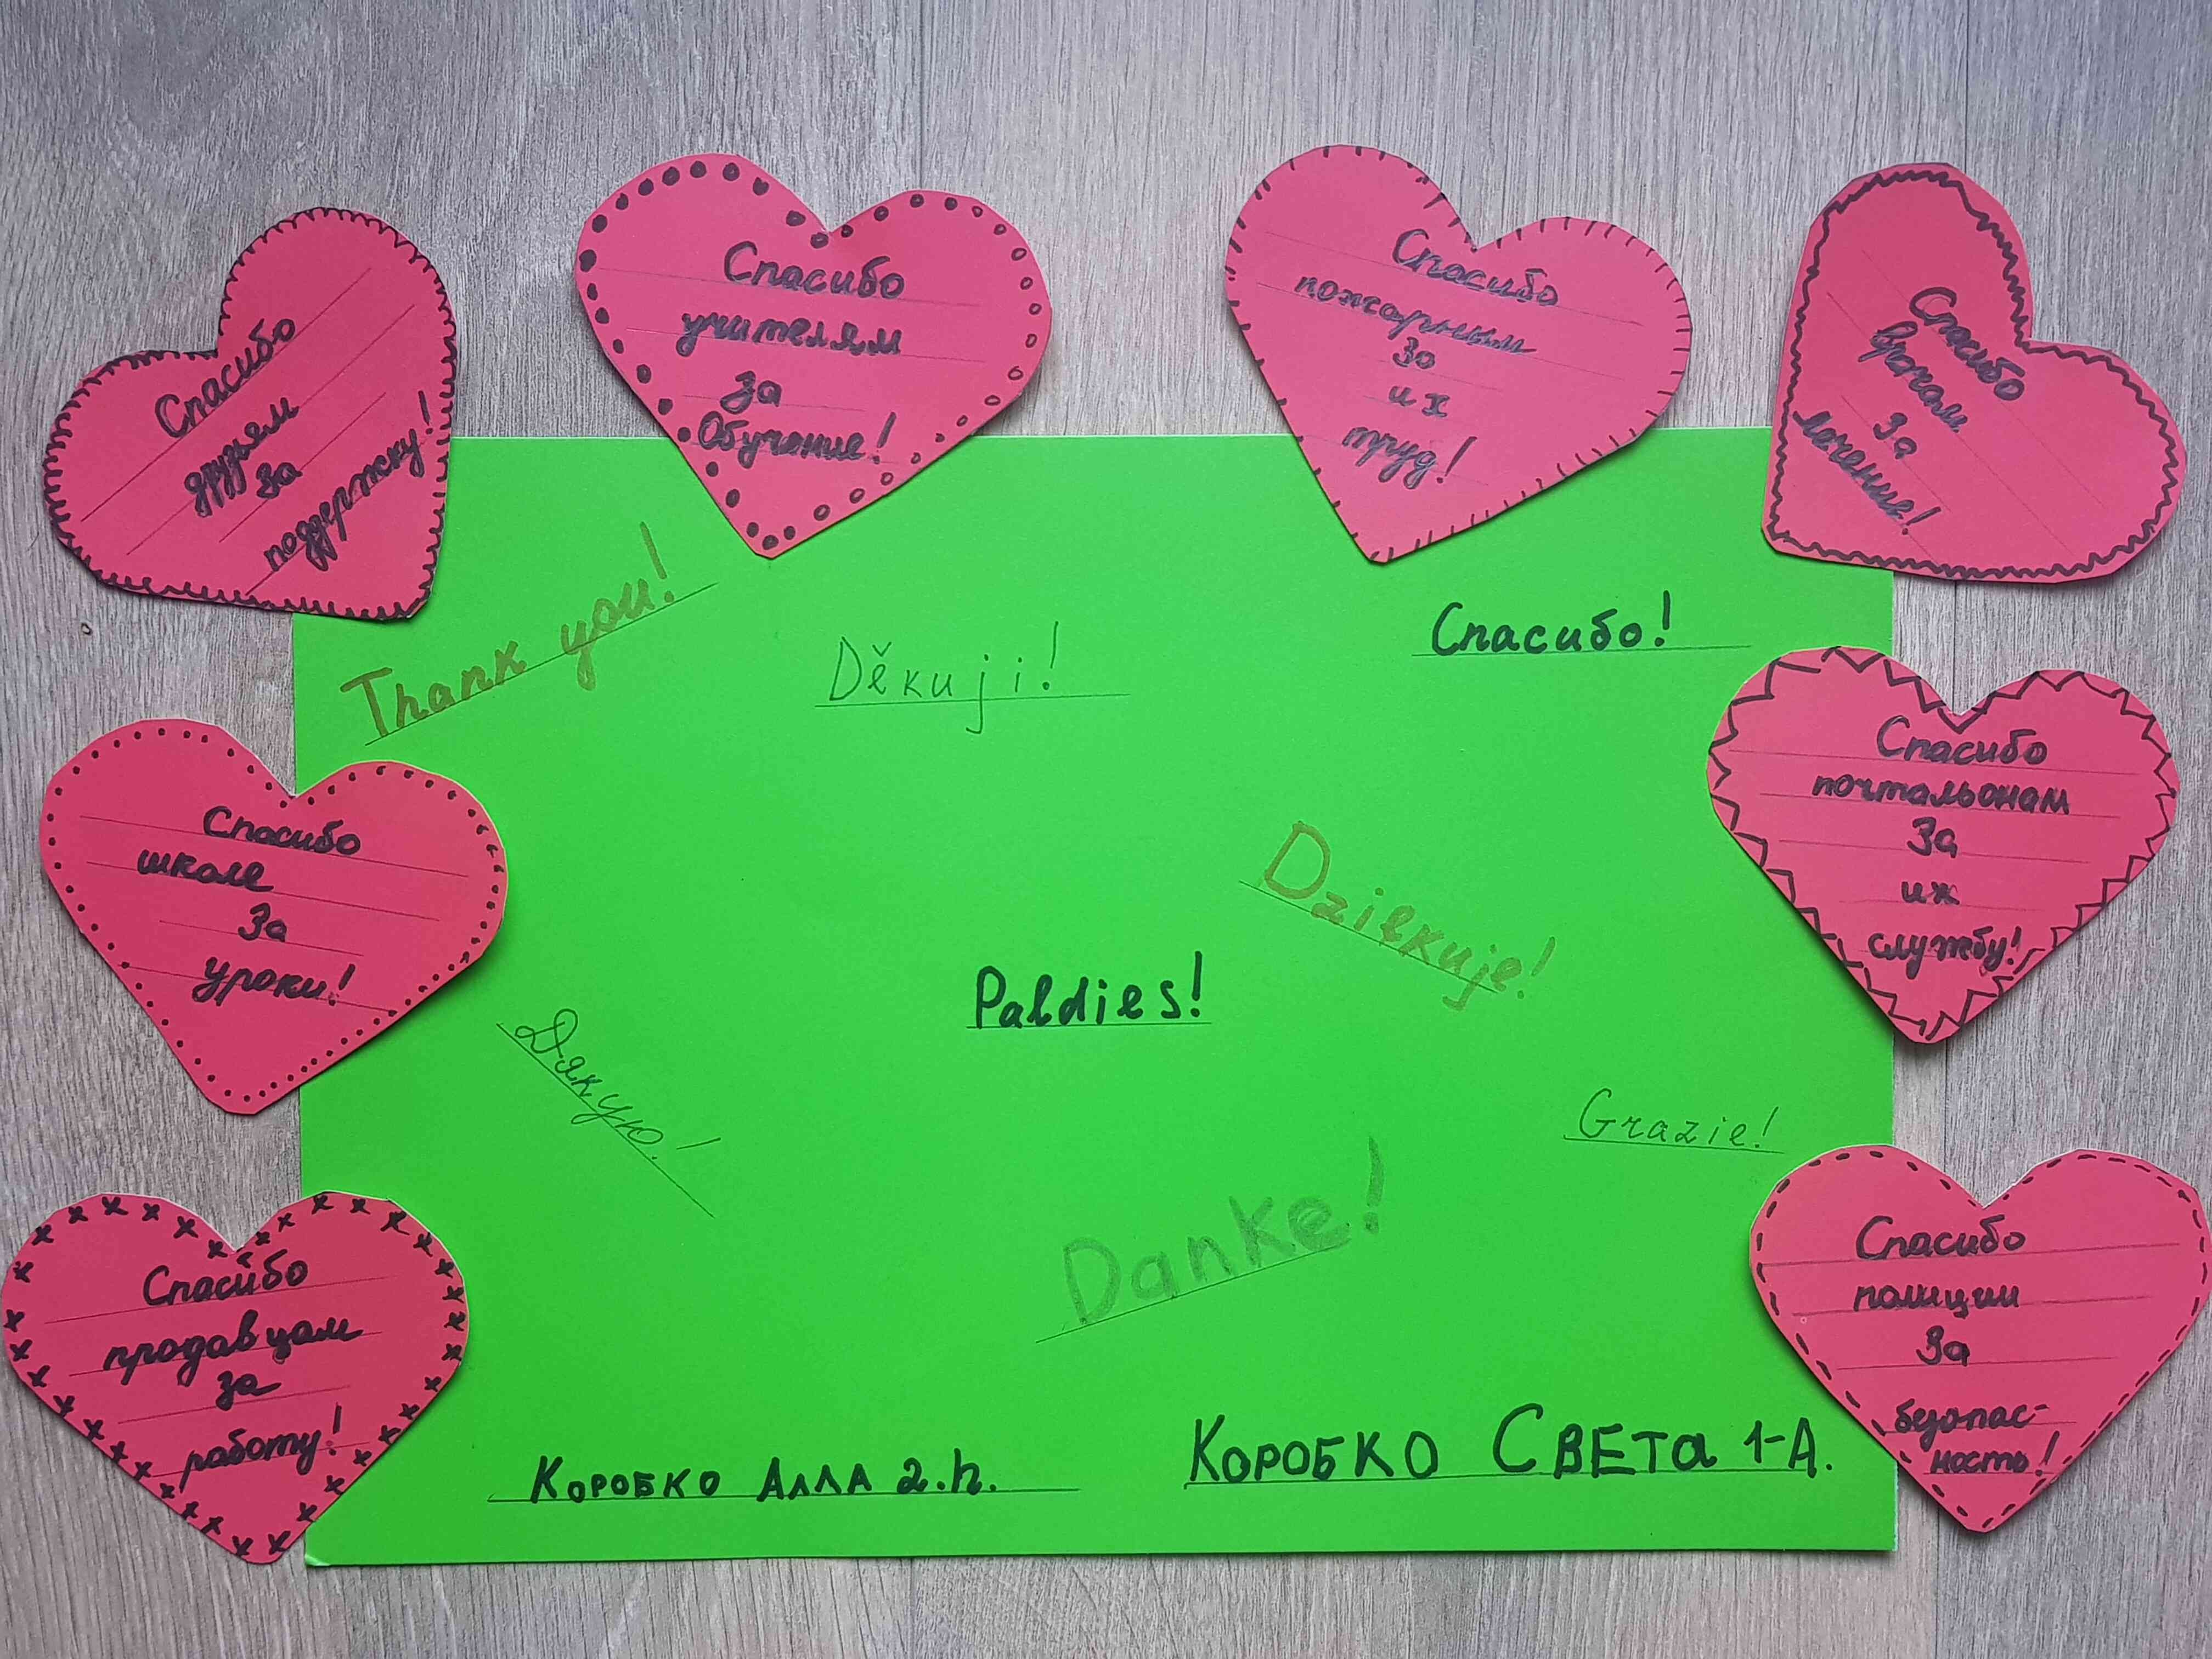 Спасибо
друзьям
за
поддержку!
Спасибо
учителям
за
Обучение!
Спасибо
пожарным
За
их
труд!
Спасибо
врачам
За
лечение!
Thank you!
Děkuji!
Спасибо!
Спасибо
школе
За
уроки!
Спасибо
почтальонам
За
иж
службу!
Dziękuje!
Paldies!
Дякую!
Grazie!
Danke!
Спасибо
продавцам
за
работу!
Спасибо
полиции
За
безопас-
ность!
Коробко Алла 2.h.
Коробко Света 1-А.